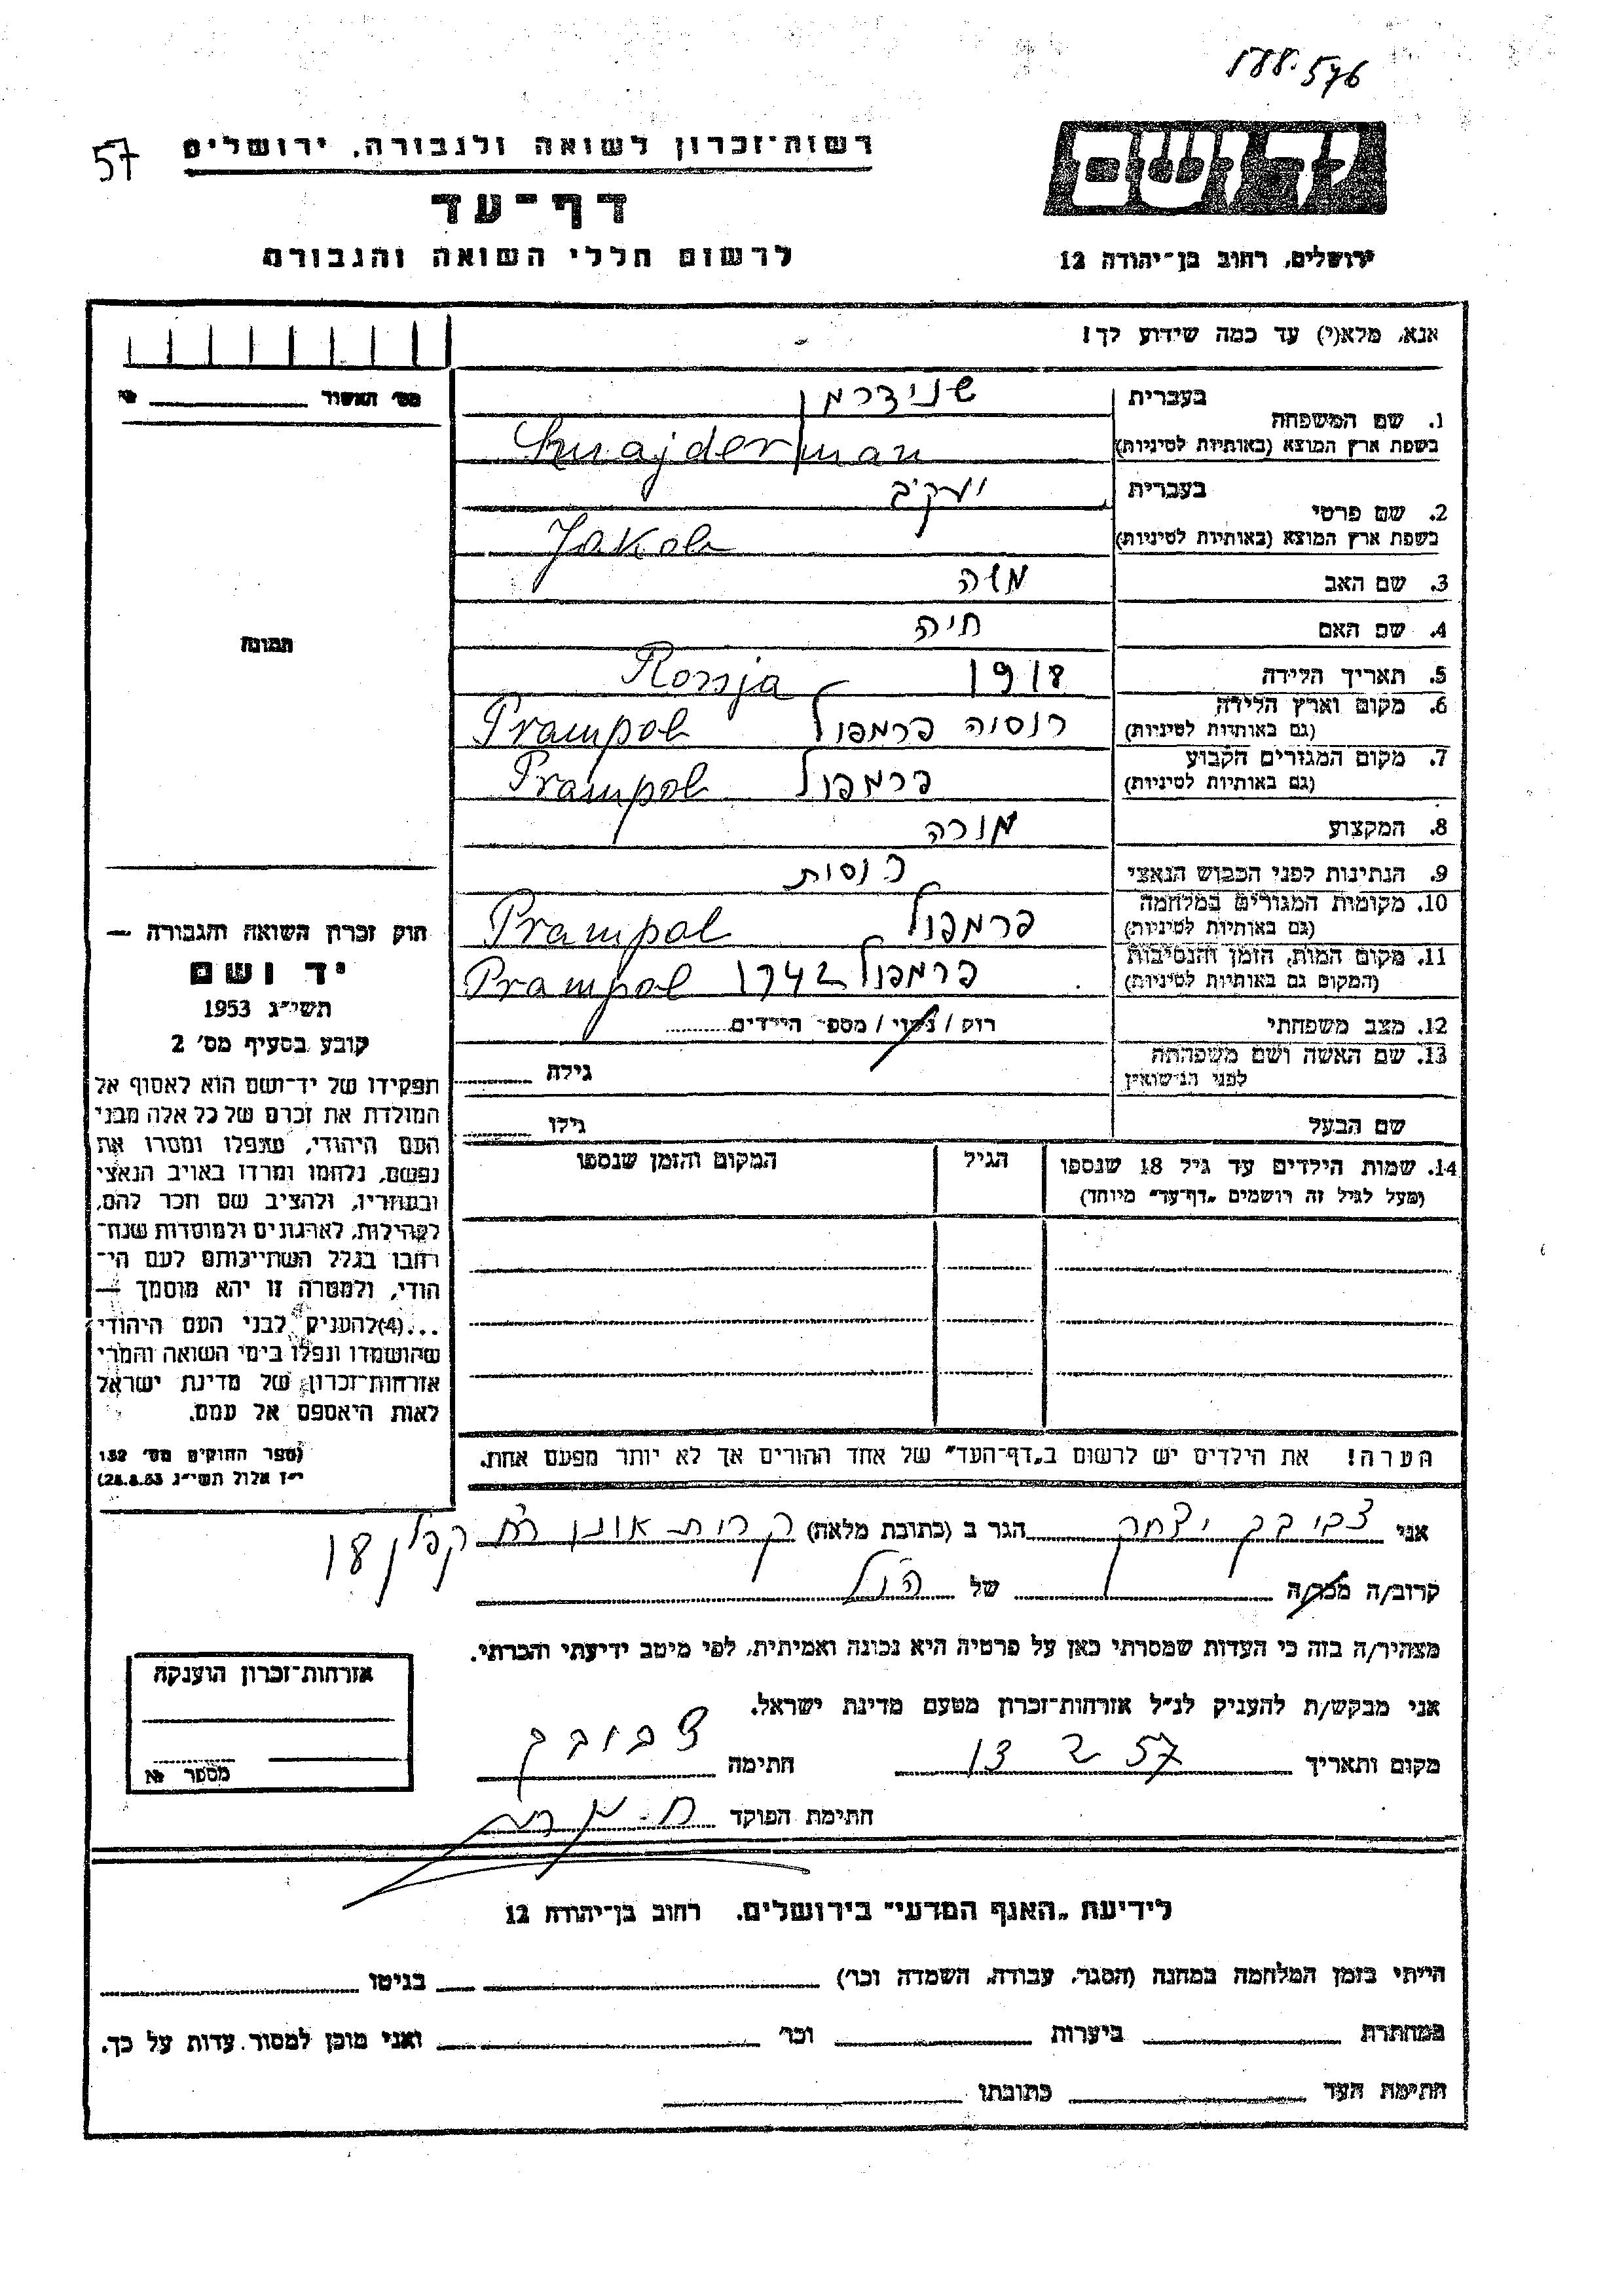 188.576
57
רשות־זכרון לשואה ולגבורה, ירושלים
יד ושם
דף־עד
לרשום חללי השואה והגבורה
ירושלים, רחוב בן־יהודה 12
אנא, מלא(י) עד כמה שידוע לך!
מס' האשור
1. שם המשפחה
בעברית שנידרמן
בשפת ארץ המוצא (באותיות לטיניות) Sznajderman
2. שם פרטי
בעברית יעקיב
בשפת ארץ המוצא (באותיות לטיניות) Jakob
3. שם האב משה
4. שם האם חיה
5. תאריך הלידה 1918 Rosija
6. מקום וארץ הלידה רוסיה פרמפול Prampol
(גם באותיות לטיניות)
7. מקום המגורים הקבוע פרמפול Prampol
(גם באותיות לטיניות)
8. המקצוע מורה
9. הנתינות לפני הכבוש הנאצי רוסית
10. מקומות המגורים במלחמה פרמפול Prampol
(גם באותיות לטיניות)
11. מקום המות, הזמן והנסיבות פרמפול 1942 Prampol
(המקום גם באותיות לטיניות)
12. מצב משפחתי רווק / נשוי / מספר הילדים
13. שם האשה ושם משפחתה גילה
לפני הנישואין
שם הבעל גילו
14. שמות הילדים עד גיל 18 שנספו הגיל המקום והזמן שנספו
(מעל לגיל זה רושמים „דף־עד" מיוחד)
הערה! את הילדים יש לרשום ב„דף־העד" של אחד ההורים אך לא יותר מפעם אחת.
תמונה
חוק זכרון השואה והגבורה —
יד ושם
תשי"ג 1953
קובע בסעיף מס' 2
תפקידו של יד־ושם הוא לאסוף אל
המולדת את זכרם של כל אלה מבני
העם היהודי, שנפלו ומסרו את
נפשם, נלחמו ומרדו באויב הנאצי
ובעוזריו, ולהציב שם וזכר להם,
לקהילות, לארגונים ולמוסדות שנח־
רבו בגלל השתייכותם לעם הי־
הודי, ולמטרה זו יהא מוסמך —
...(4)להעניק לבני העם היהודי
שהושמדו ונפלו בימי השואה והמרי
אזרחות־זכרון של מדינת ישראל
לאות היאספם אל עמם.
(ספר החוקים מס' 132
י"ז אלול תשי"ג 28.8.53)
אני צבובק יצחק הגר ב (כתובת מלאה) קרית אונו רח קפלן 18
קרוב/ה מכר/ה של הנ"ל
מצהיר/ה בזה כי העדות שמסרתי כאן על פרטיה היא נכונה ואמיתית, לפי מיטב ידיעתי והכרתי.
אני מבקש/ת להעניק לנ"ל אזרחות־זכרון מטעם מדינת ישראל.
מקום ותאריך 13 2 57 חתימה צבובק
חתימת הפוקד
אזרחות־זכרון הוענקה
מספר
לידיעת „האגף המדעי" בירושלים. רחוב בן־יהודה 12
הייתי בזמן המלחמה במחנה (הסגר, עבודה, השמדה וכו') בגיטו
במחתרת ביערות וכו' ואני מוכן למסור עדות על כך.
חתימת העד כתובתו